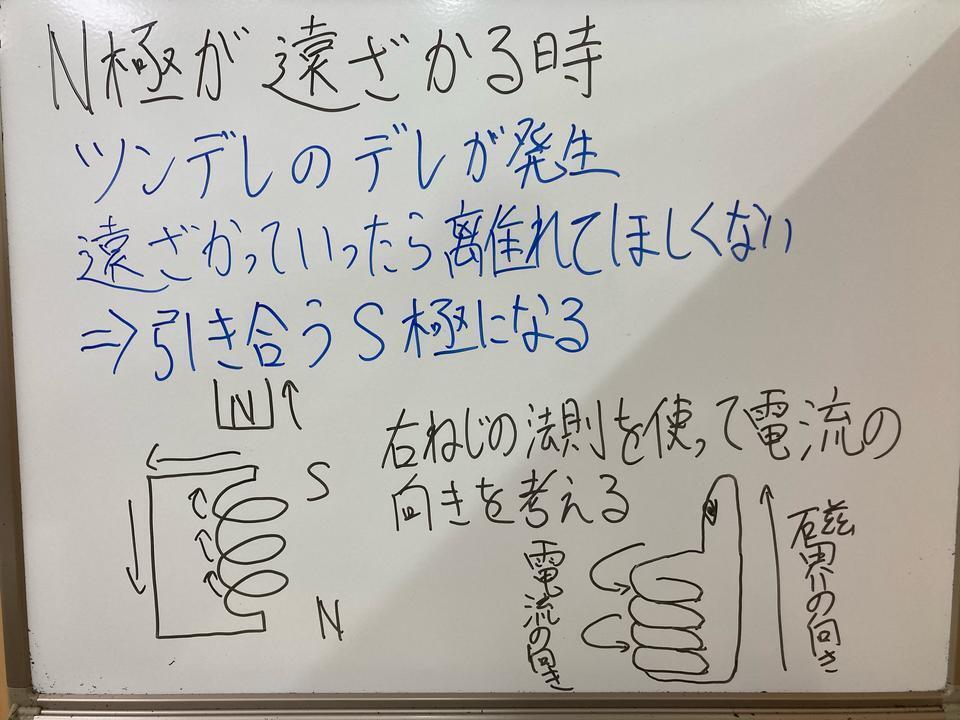 N極が遠ざかる時
ツンデレのデレが発生
遠ざかっていったら離れてほしくない
⇒引き合うS極になる
N↑
S
N
右ねじの法則を使って電流の
向きを考える
電流の向き
磁界の向き